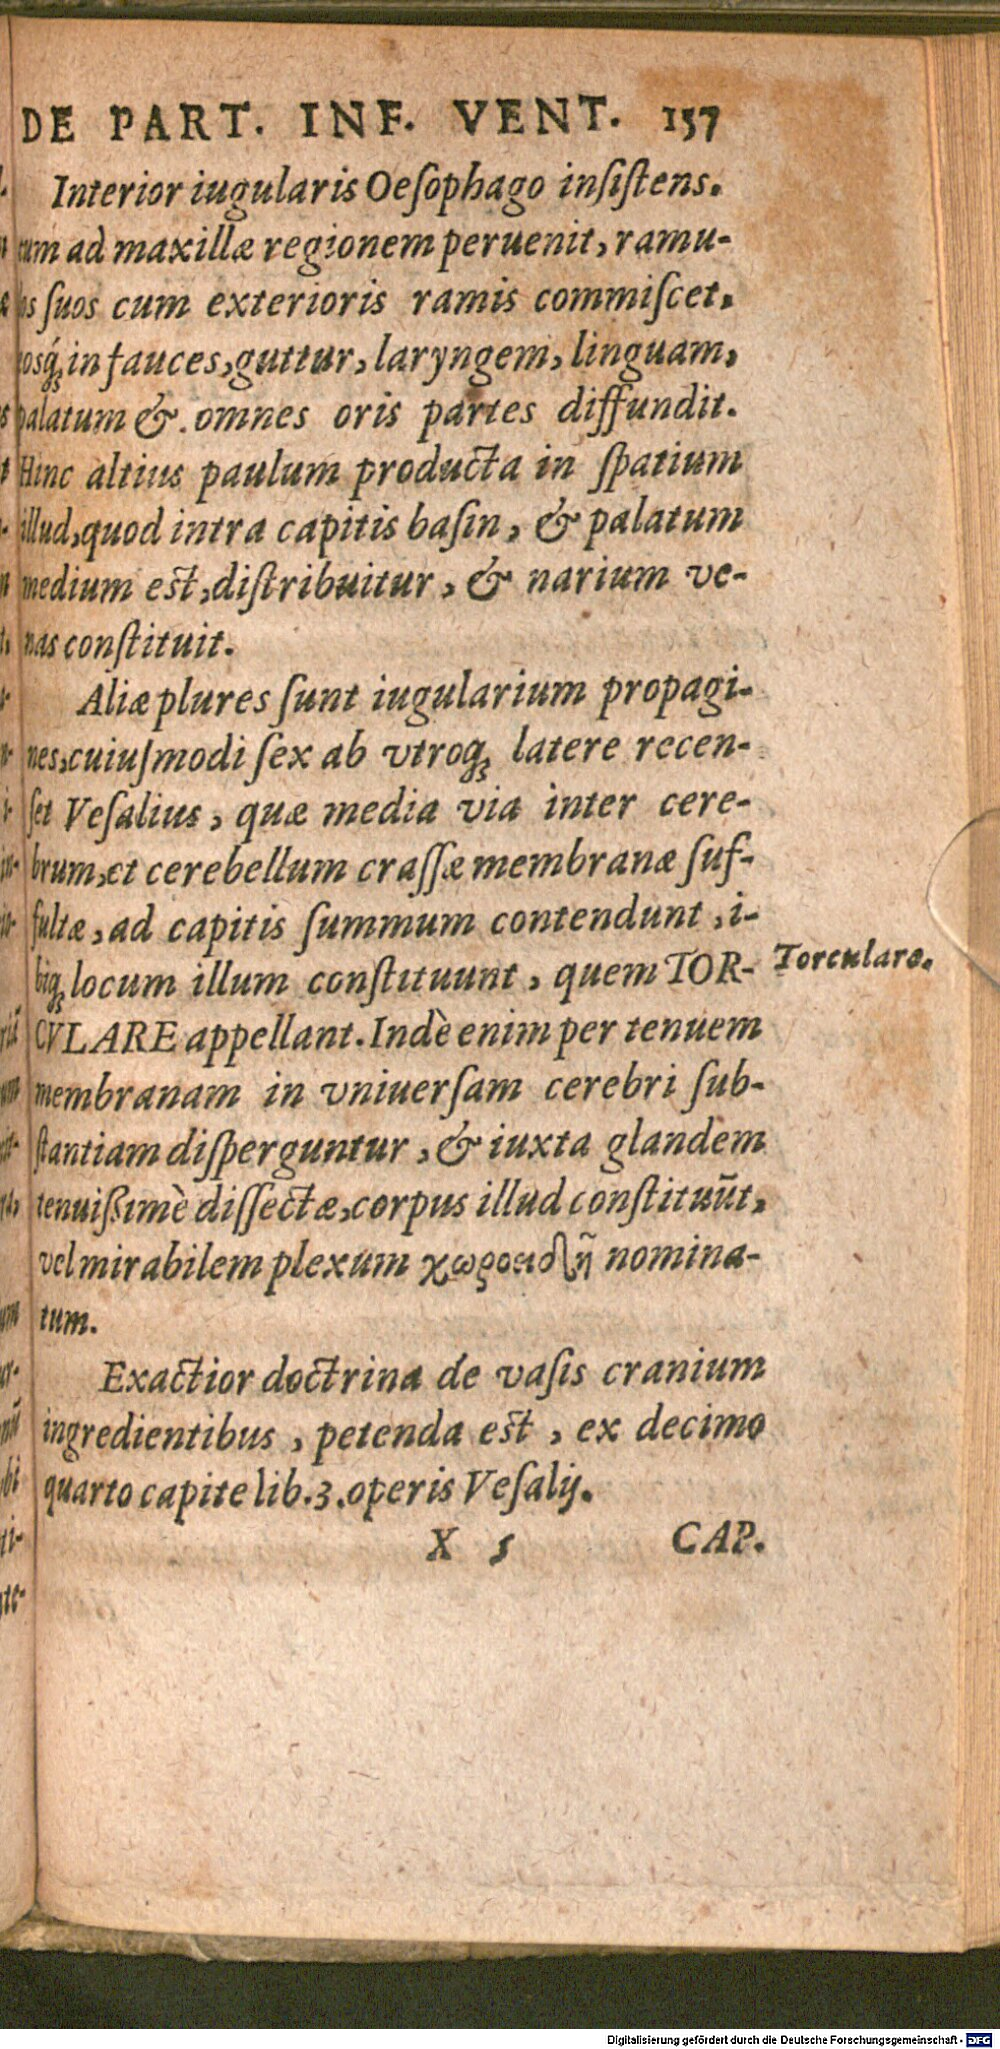 DE PART. INF. VENT. 157
Interior iugularis Oeſophago inſiſtens.
cum ad maxillæ regionem peruenit, ramu-
os ſuos cum exterioris ramis commiſcet.
eosq́ꝫ in fauces, guttur, laryngem, linguam,
palatum & omnes oris partes diffundit.
Hinc altius paulum producta in ſpatium
illud, quod intra capitis baſin, & palatum
medium est, diſtribuitur, & narium ve-
nas conſtituit.
Aliæ plures ſunt iugularium propagi-
nes, cuiuſmodi ſex ab vtroqꝫ latere recen-
ſet Veſalius, quæ media via inter cere-
brum, et cerebellum craſſæ membranæ ſuf-
fultæ, ad capitis ſummum contendunt, i-
biqꝫ locum illum conſtituunt, quem TOR-
Torculare.
CVLARE appellant. Indè enim per tenuem
membranam in vniuerſam cerebri ſub-
ſtantiam diſperguntur, & iuxta glandem
tenuißimè diſſectæ, corpus illud conſtituũt,
vel mirabilem plexum χωροειδῆ nomina-
tum.
Exactior doctrina de vaſis cranium
ingredientibus, petenda est, ex decimo
quarto capite lib. 3. operis Veſalij.
X 5 CAP.
Digitalisierung gefördert durch die Deutsche Forschungsgemeinschaft - DFG